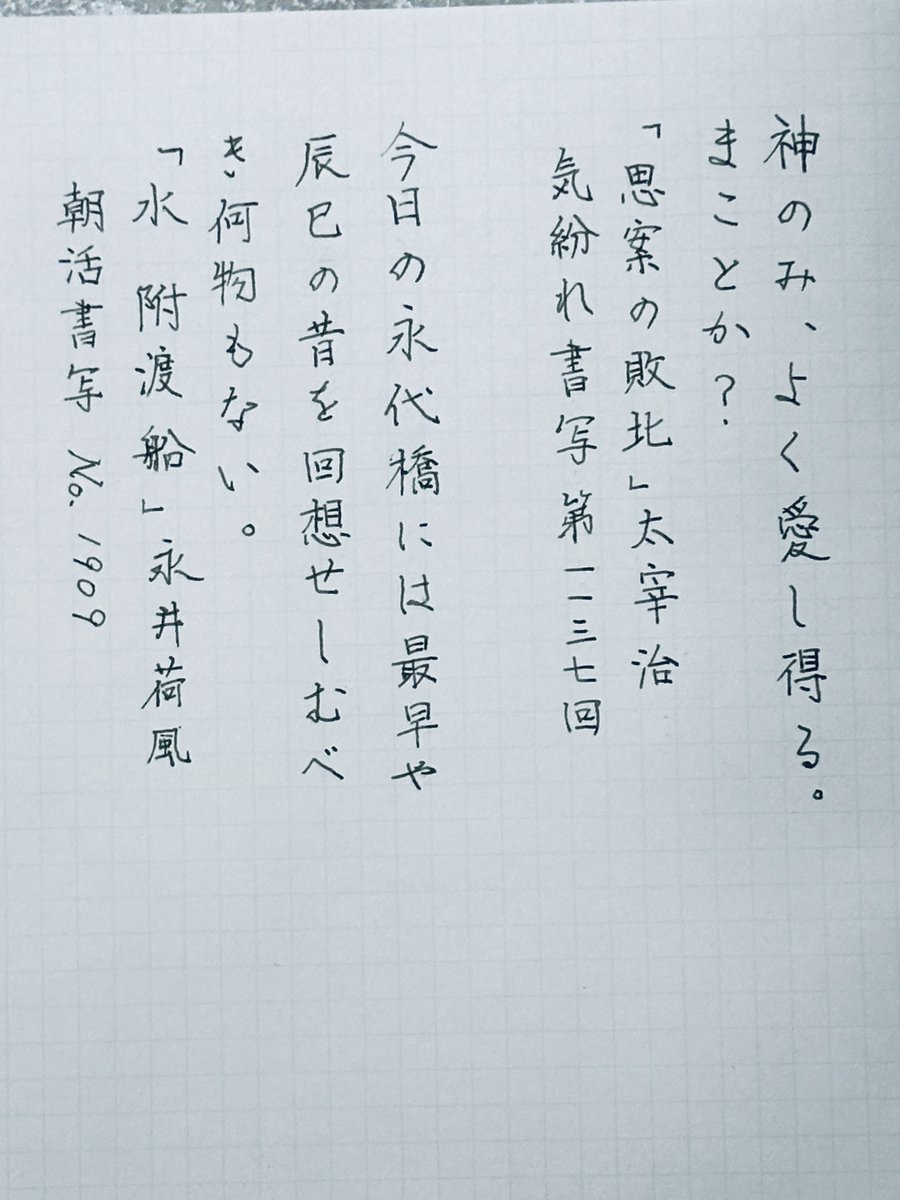 神のみ、よく愛し得る。
まことか？
「思案の敗北」太宰治
気紛れ書写第一一三七回
今日の永代橋には最早や
辰巳の昔を回想せしむべ
き何物もない。
「水　附渡船」永井荷風
朝活書写 No. 1909